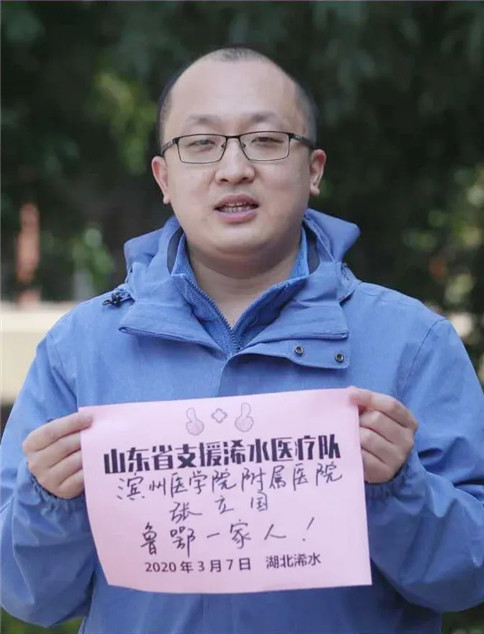 山东省支援浠水医疗队
滨州医学院附属医院
张立国
鲁鄂一家人！
2020年3月7日 湖北浠水